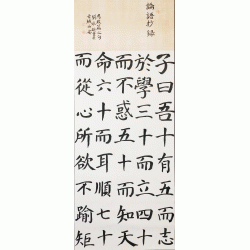 論語抄錄
子曰吾十有五而志
於學三十而立四十
而不惑五十而知天
命六十而耳順七十
而從心所欲不踰矩